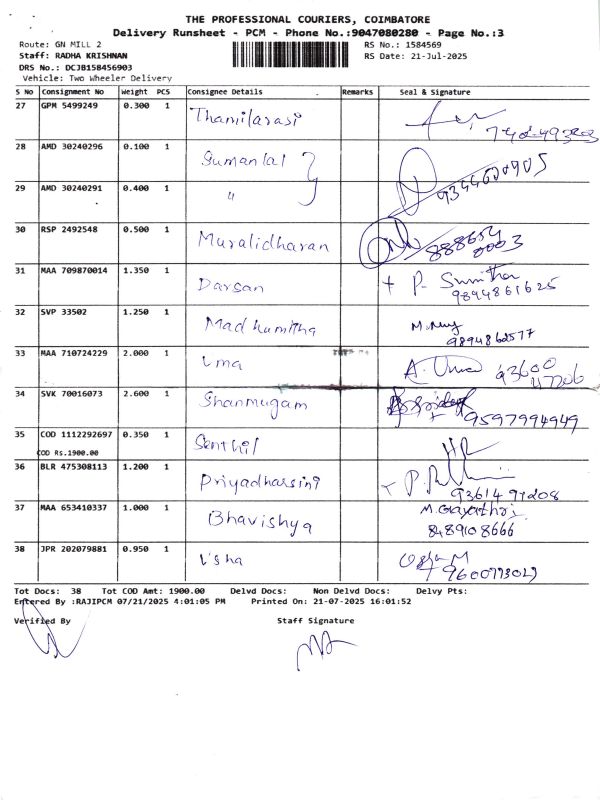 THE PROFESSIONAL COURIERS, COIMBATORE
Delivery Runsheet - PCM - Phone No.:9047080280 - Page No.:3
Route: GN MILL 2 RS No.: 1584569
Staff: RADHA KRISHNAN RS Date: 21-Jul-2025
DRS No.: DCJB158456903
Vehicle: Two Wheeler Delivery
S No Consignment No Weight PCS Consignee Details Remarks Seal & Signature
27 GPM 5499249 0.300 1 Thamilarasi
28 AMD 30240296 0.100 1 Sumanlal
29 AMD 30240291 0.400 1 " 9344600905
30 RSP 2492548 0.500 1 Muralidharan
31 MAA 709870014 1.350 1 Darsan + P. Sumitha
9894861625
32 SVP 33502 1.250 1 Madhumitha
9894862577
33 MAA 710724229 2.000 1 Uma A. Uma 93600
47206
34 SVK 70016073 2.600 1 Shanmugam 9597994949
35 COD 1112292697 0.350 1 Senthil
COD Rs.1900.00
36 BLR 475308113 1.200 1 Priyadharsini
9361497208
37 MAA 653410337 1.000 1 Bhavishya M. Gayathri
8489108666
38 JPR 202079881 0.950 1 Usha Usha M
9600773029
Tot Docs: 38 Tot COD Amt: 1900.00 Delvd Docs: Non Delvd Docs: Delvy Pts:
Entered By :RAJIPCM 07/21/2025 4:01:05 PM Printed On: 21-07-2025 16:01:52
Verified By Staff Signature